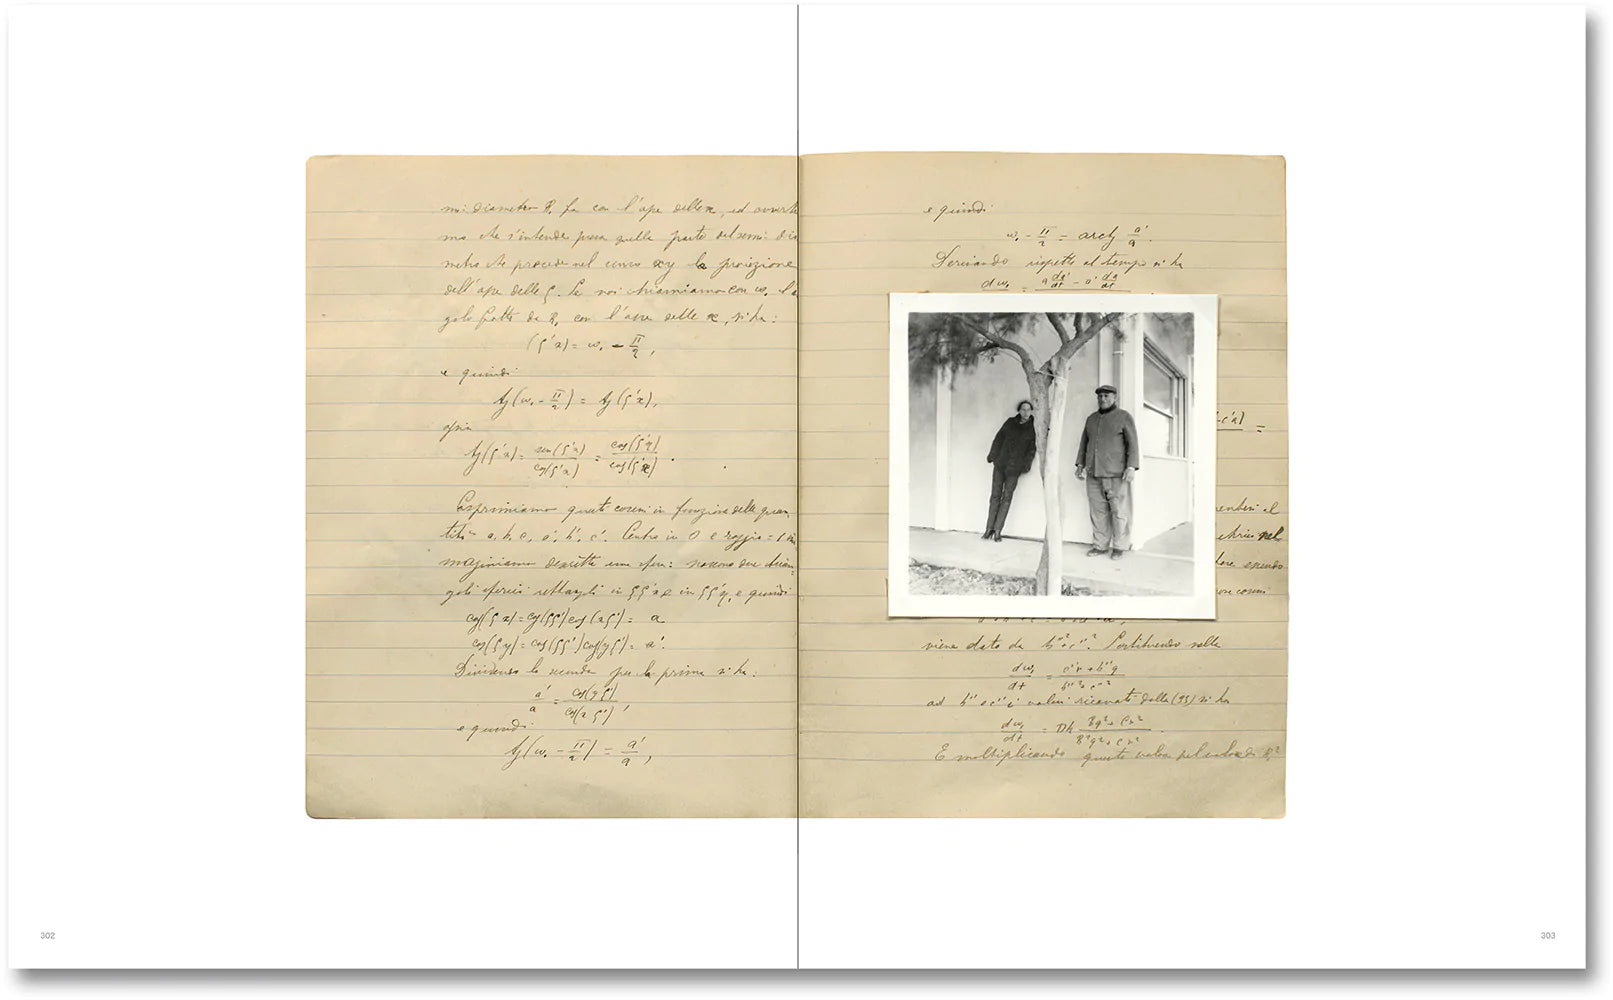 mi diametro R, fa con l'asse delle x, ed avverti
mo che s'intende presa quella parte del semi dia
metro che precede nel senso xy la proiezione
dell'asse delle ζ. Se noi chiamiamo con ω, l'a
golo fatto da R, con l'asse delle x, si ha:
(ζ'x) = ω₁ - π/2,
e quindi
tg(ω₁ - π/2) = tg(ζ'x),
ossia
tg(ζ'x) = sen(ζ'x)/cos(ζ'x) = cos(ζ'y)/cos(ζ'x).
Esprimiamo questi coseni in funzione delle quan
tità a, b, c, a', b', c'. Centro in O e raggio = 1 im
maginiamo descritta una sfera: nascono due trian-
goli sferici rettangoli in ζζ'x e in ζζ'y, e quindi
cos(ζx) = cos(ζζ')cos(xζ') = a
cos(ζy) = cos(ζζ')cos(yζ') = a'.
Dividendo la seconda per la prima si ha:
a'/a = cos(yζ')/cos(xζ'),
e quindi
tg(ω₁ - π/2) = a'/a,
302
e quindi
ω₁ - π/2 = arctg a'/a.
Derivando rispetto al tempo si ha
dω₁ = a da'/dt - a' da/dt
viene dato da b''² + c''². Sostituendo nella
dω₁/dt = c''r + b''q / b''² + c''²
ad b'' e c'' i valori ricavati dalle (93) si ha
dω₁/dt = Dh Bq² + Cr² / B²q² + C²r².
E moltiplicando questo valore pel valore di R²
303